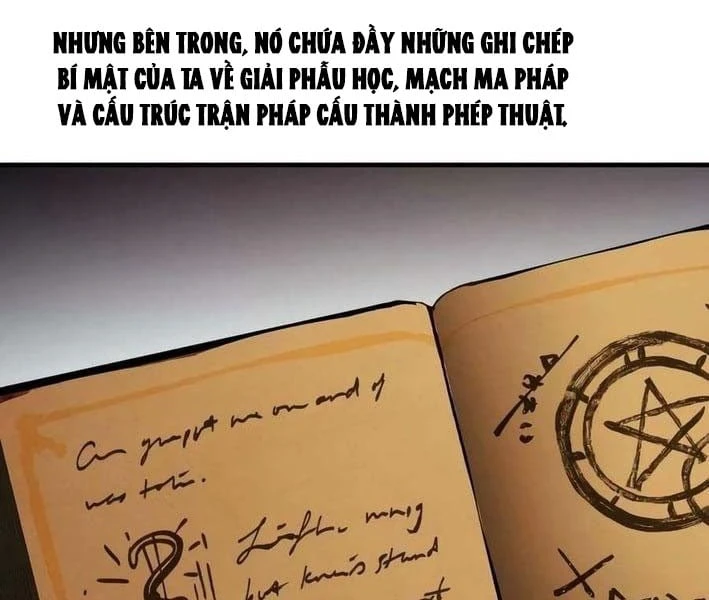 NHƯNG BÊN TRONG, NÓ CHỨA ĐẦY NHỮNG GHI CHÉP
BÍ MẬT CỦA TA VỀ GIẢI PHẪU HỌC, MẠCH MA PHÁP
VÀ CẤU TRÚC TRẬN PHÁP CẤU THÀNH PHÉP THUẬT.
me on and of
was
stand